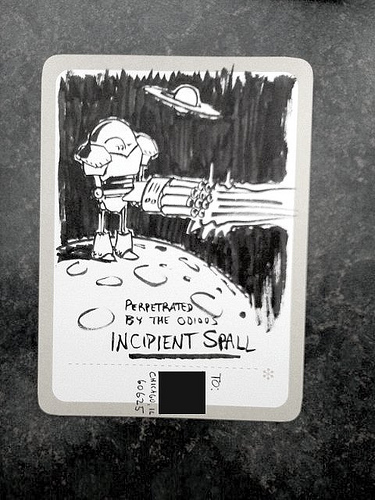 PERPETRATED
BY THE ODIOUS
INCIPIENT SPALL
TO:
CHICAGO, IL
60625